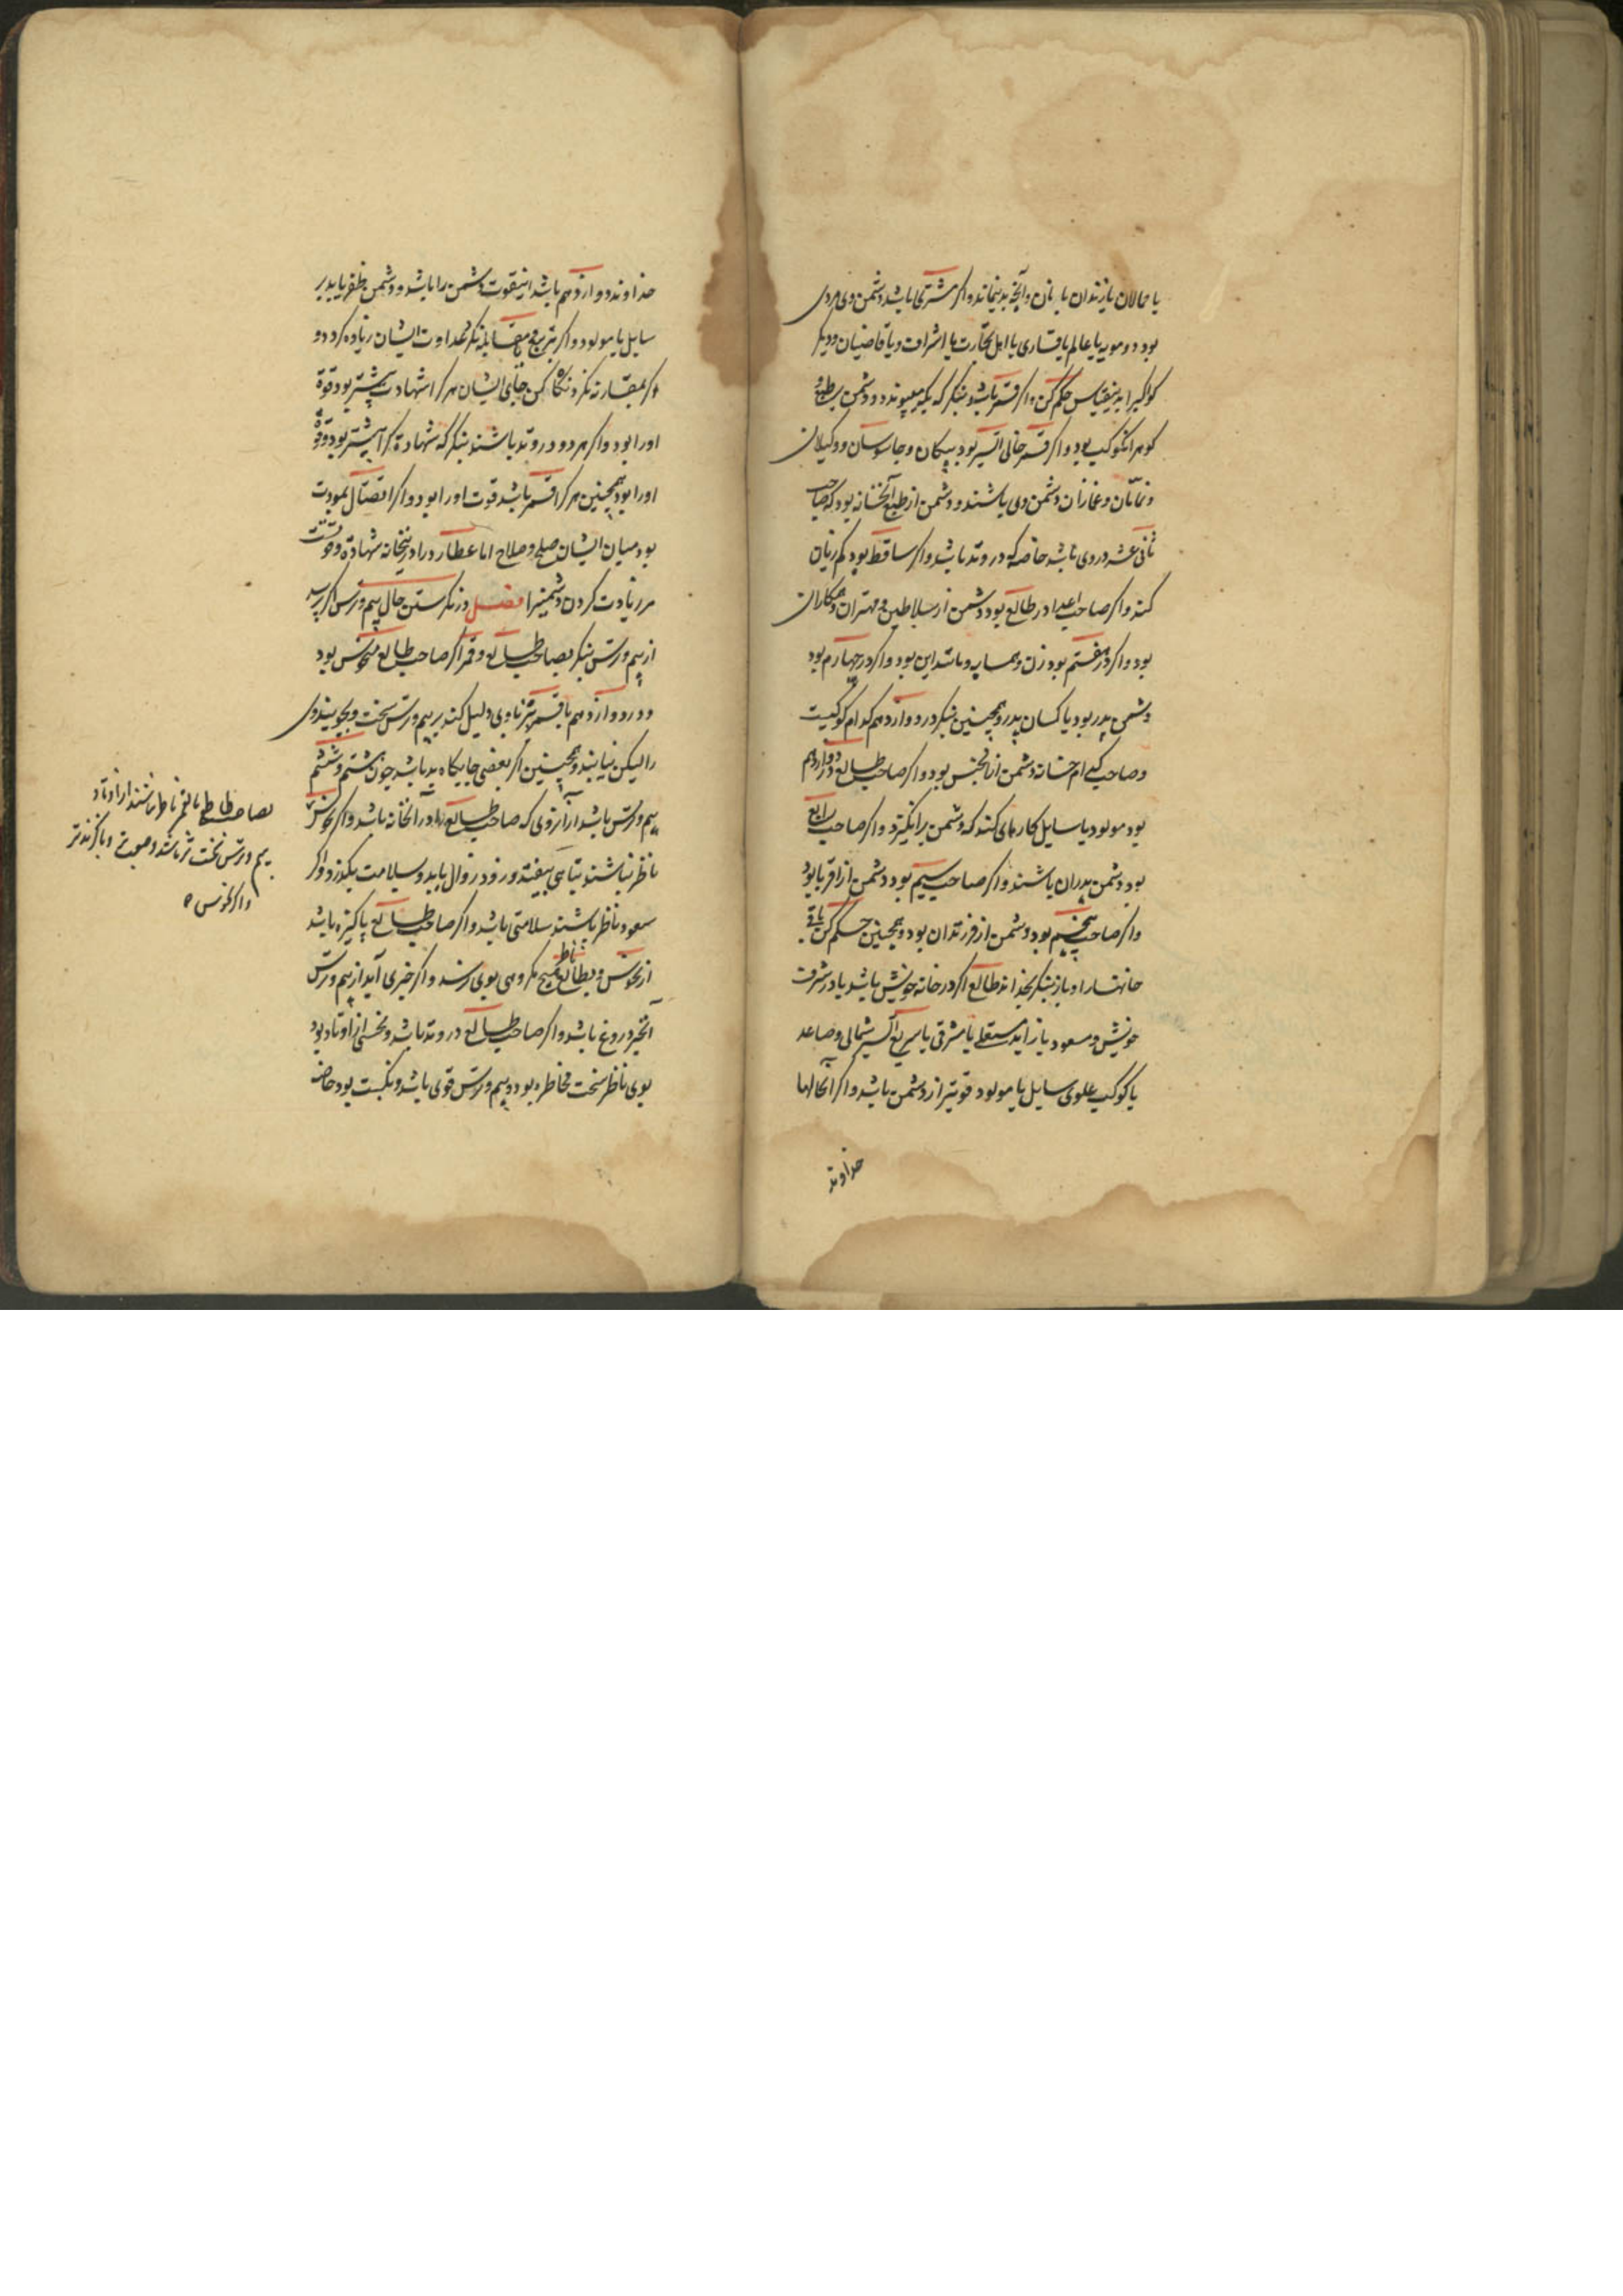 یا حمالان یا رندان یا زنان و آنچه بدینماند و اکر مشتری باشد دشمن وی مردی
بود دو مویه یا عالم یا قاری یا اهل تجارت یا اشراف و یا قاضیان و دیکر
کواکبرا بدینقیاس حکم کن و اکر قمر باشد بنکر که بکه می‌پیوندد دشمن بر طبع
کوهر انکوکب بود و اکر قمر خالی السیر بود پیکان و جاسوسان و وکیلان
و نمامان و غمازان دشمن وی باشند و دشمن از طبع آنخانه بود که صاحب
ثانی عشر در وی باشد خاصه که در وتد باشد و اکر ساقط بود کم زیان
کند و اکر صاحب اعدا در طالع بود دشمن از سلاطین و مهتران و همکاران
بود و اکر در هفتم بود زن و همسایه و مانند این بود و اکر در چهارم بود
دشمن پدر بود یا کسان پدر و همچنین بنکر در دوازدهم کدام کوکبست
و صاحب کدام خانه دشمن از آنجنس بود و اکر صاحب طالع در دوازدهم
بود مولود یا سایل کارهای کند که دشمن برانکیزد و اکر صاحب رابع
بود دشمن پدران باشند و اکر صاحب سیم بود دشمن از اقربا بود
و اکر صاحب پنجم بود دشمن از فرزندان بود و همچنین حکم کن باقی
خانهارا و باز بنکر بخداوند طالع اکر در خانه خویش باشد یا در شرف
خویش و مسعود یا زاید مستعلی یا مشرقی یا سریع السیر شمالی و صاعد
یا کوکب علوی سایل یا مولود قویتر از دشمن باشد و اکر آنحالها
خداوند
خداوند دوازدهم باشد اینقوت دشمن را باشد و دشمن ظفر یابد بر
سایل یا مولود و اکر بتربیع و مقابله نکرد عداوت ایشان زیاده کردد و
اکر بمقارنه نکرد نکاه کن بجای ایشان هر کرا شهادت بیشتر بود قوة
اورا بود و اکر هر دو در وتد باشند بنکر که شهادة کرا بیشتر بود قوة
اورا بود همچنین هر کرا قمر باشد قوت اورا بود و اکر اتصال بمودت
بود میان ایشان صلح و صلاح اما عطارد را درینخانه شهادة و قوتست
مر زیادت کردن دشمنیرا فصل در نکرستن حال بیم و ترس اکر پرسد
از بیم و ترس بنکر بصاحب طالع و قمر اکر صاحب طالع منحوس بود
و در دوازدهم یا قمر نیز با وی دلیل کند بر بیم و ترس سخت و بجویند وی
را لیکن نیابند و همچنین اکر بعضی جایکاه بد باشد چون هشتم و ششم
بیم و ترس باشد از آنروی که صاحب طالع را در آنخانه باشد و اکر نحوس
ناظر نباشند تباهی بیفتد و زود زوال یابد و بسلامت بکذرد و اکر
سعود ناظر باشند سلامتی باشد و اکر صاحب طالع پاکیزه باشد
از نحوس و بطالع ناظر هیچ مکروهی بوی نرسد و اکر خبری آید از بیم و ترس
آنخبر دروغ باشد و اکر صاحب طالع در وتد باشد و نحسی از اوتاد بود
بوی ناظر سخت مخاطره بود و بیم و ترس قوی باشد و نکبت بود خاصه
بصاحب طالع یا قمر ناظر باشند از اوتاد
بیم و ترس سخت تر باشد و صعب و با کزندتر
و اکر نحوس ه